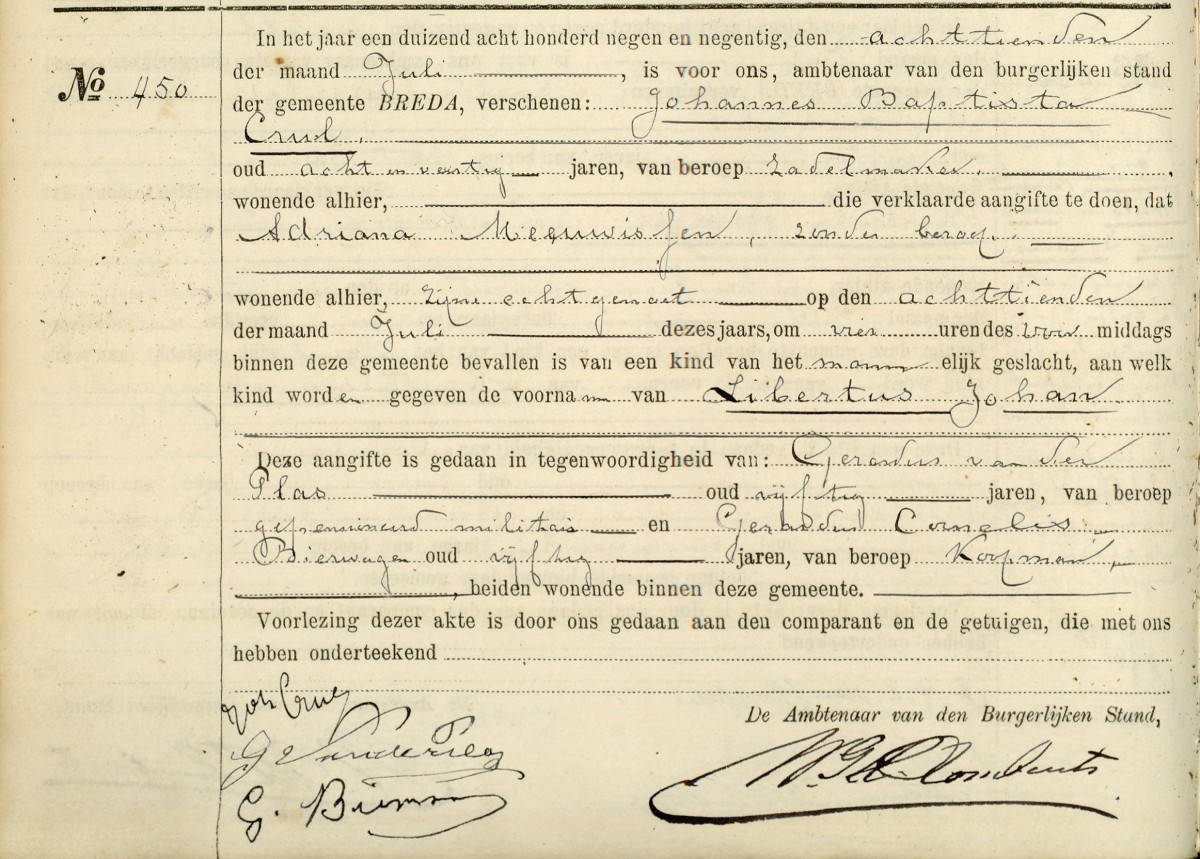 In het jaar een duizend acht honderd negen en negentig, den achttienden
№ 450
der maand Juli, is voor ons, ambtenaar van den burgerlijken stand
der gemeente BREDA, verschenen: Johannes Baptista
Crul,
oud acht en veertig jaren, van beroep zadelmaker,
wonende alhier, die verklaarde aangifte te doen, dat
Adriana Meeuwissen, zonder beroep.
wonende alhier, zijne echtgenoot op den achttienden
der maand Juli dezes jaars, om vier uren des voor middags
binnen deze gemeente bevallen is van een kind van het mannelijk geslacht, aan welk
kind worden gegeven de voornamen van Libertus Johan.
Deze aangifte is gedaan in tegenwoordigheid van: Gerardus van der
Plas oud vijftig jaren, van beroep
gepensioneerd militair en Gerardus Cornelis
Bierwagen oud vijftig jaren, van beroep Koopman,
, beiden wonende binnen deze gemeente.
Voorlezing dezer akte is door ons gedaan aan den comparant en de getuigen, die met ons
hebben onderteekend
De Ambtenaar van den Burgerlijken Stand,
Joh Crul
G
G.